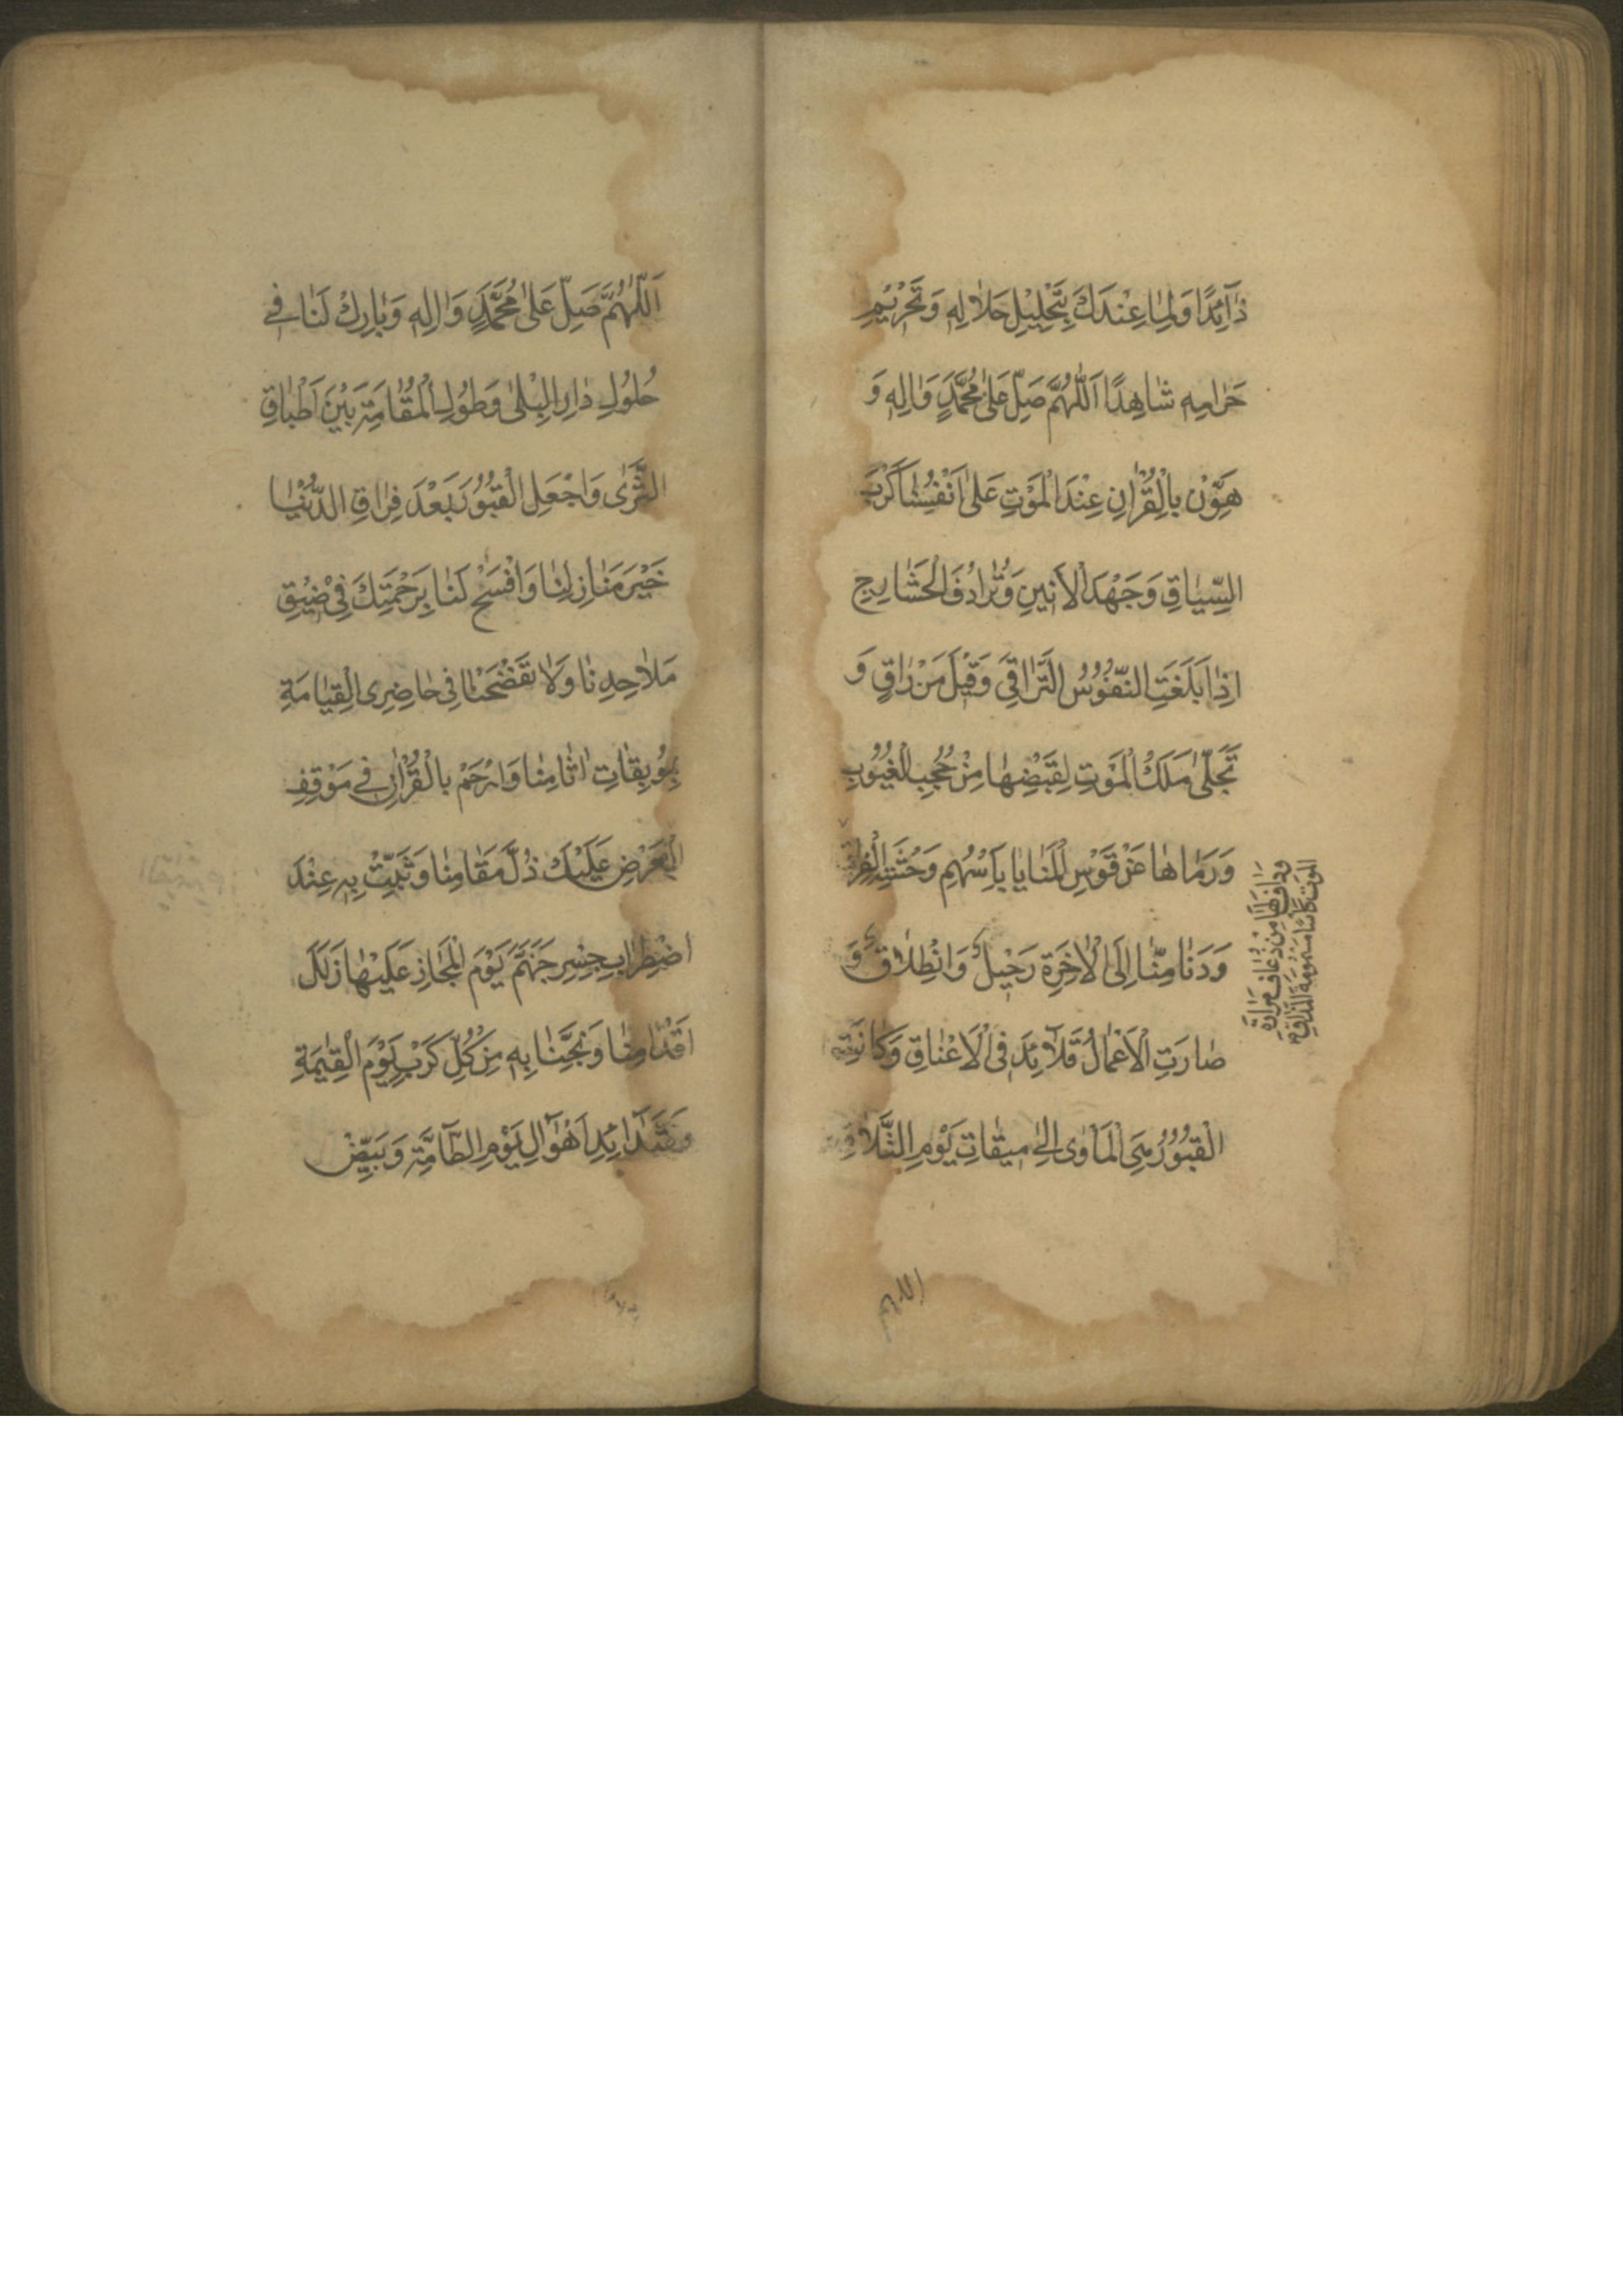 ذٰآئِدًا وَلِمٰا عِنْدَكَ بِتَحْلِيْلِ حَلَالِهِ وَتَحْرِيْمِ
حَرٰامِهِ شٰاهِدًا اَللّٰهُمَّ صَلِّ عَلٰى مُحَمَّدٍ وَاٰلِهِ وَ
هَوِّنْ بِالْقُرْاٰنِ عِنْدَ الْمَوْتِ عَلٰى اَنْفُسِنٰا كَرْبَ
السِّيٰاقِ وَجَهْدَ الْاَنِيْنِ وَتَرٰادُفَ الْحَشٰارِجِ
اِذٰا بَلَغَتِ النُّفُوْسُ التَّرٰاقِيَ وَقِيْلَ مَنْ رٰاقٍ وَ
تَجَلّٰى مَلَكُ الْمَوْتِ لِقَبْضِهٰا مِنْ حُجُبِ الْغُيُوْبِ
وَرَمٰاهٰا عَنْ قَوْسِ الْمَنٰايٰا بِاَسْهُمِ وَحْشَةِ الْفِرٰاقِ
وَدٰافَ لَهٰا مِنْ ذُعٰافِ مَرٰارَةِ
الْمَوْتِ كَأْسًا مَسْمُوْمَةَ الْمَذٰاقِ
وَدَنٰا مِنّٰا اِلَى الْاٰخِرَةِ رَحِيْلٌ وَانْطِلٰاقٌ وَ
صٰارَتِ الْاَعْمٰالُ قَلٰآئِدَ فِى الْاَعْنٰاقِ وَكٰانَتِ
الْقُبُوْرُ هِيَ الْمَأْوٰى اِلٰى مِيْقٰاتِ يَوْمِ التَّلٰاقِ
اللهم
اَللّٰهُمَّ صَلِّ عَلٰى مُحَمَّدٍ وَاٰلِهِ وَبٰارِكْ لَنٰا فِي
حُلُوْلِ دٰارِ الْبِلٰى وَطُوْلِ الْمُقٰامَةِ بَيْنَ اَطْبٰاقِ
الثَّرٰى وَاجْعَلِ الْقُبُوْرَ بَعْدَ فِرٰاقِ الدُّنْيٰا
خَيْرَ مَنٰازِلِنٰا وَافْسَحْ لَنٰا بِرَحْمَتِكَ فِيْ ضِيْقِ
مَلٰاحِدِنٰا وَلٰا تَفْضَحْنٰا فِى حٰاضِرِى الْقِيٰامَةِ
بِمُوْبِقٰاتِ اٰثٰامِنٰا وَارْحَمْ بِالْقُرْاٰنِ فِي مَوْقِفِ
الْعَرْضِ عَلَيْكَ ذُلَّ مَقٰامِنٰا وَثَبِّتْ بِهِ عِنْدَ
اضْطِرٰابِ جِسْرِ جَهَنَّمَ يَوْمَ الْمَجٰازِ عَلَيْهٰا زَلَلَ
اَقْدٰامِنٰا وَنَجِّنٰا بِهِ مِنْ كُلِّ كَرْبٍ يَوْمَ الْقِيٰمَةِ
وَشَدٰآئِدِ اَهْوٰالِ يَوْمِ الطّٰآمَّةِ وَبَيِّضْ